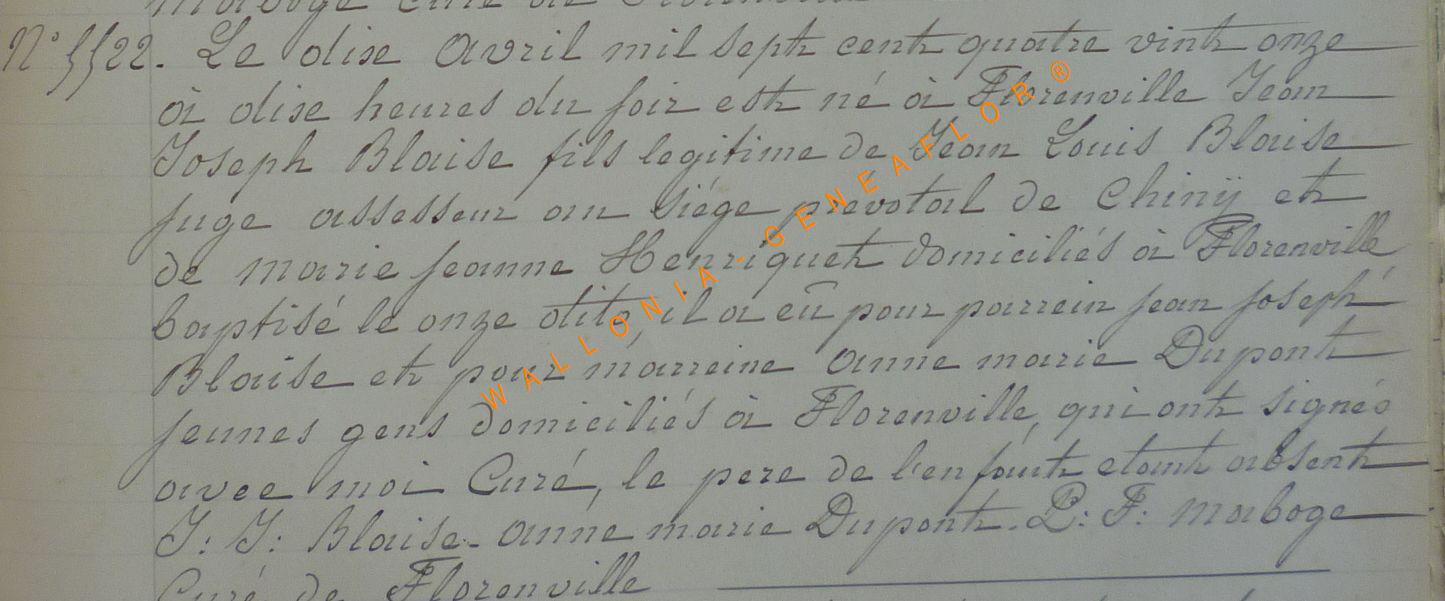 maboge Curé de Florenville
N° 5522. Le dix avril mil sept cent quatre vint onze
à dix heures du soir est né à Florenville Jean
Joseph Blaise fils legitime de Jean Louis Blaise
juge assesseur au siége prévotal de Chinÿ et
de marie jeanne Henriquet domiciliés à Florenville
baptisé le onze dito, il a eû pour parrein jean joseph
Blaise et pour marreine anne marie Dupont
jeunes gens domiciliés à Florenville, qui ont signés
avec moi Curé, le pere de l'enfant etant absent
J: J: Blaise - anne marie Dupont - P: F: maboge
Curé de Florenville
WALLONIA - GENEAFLOR ®